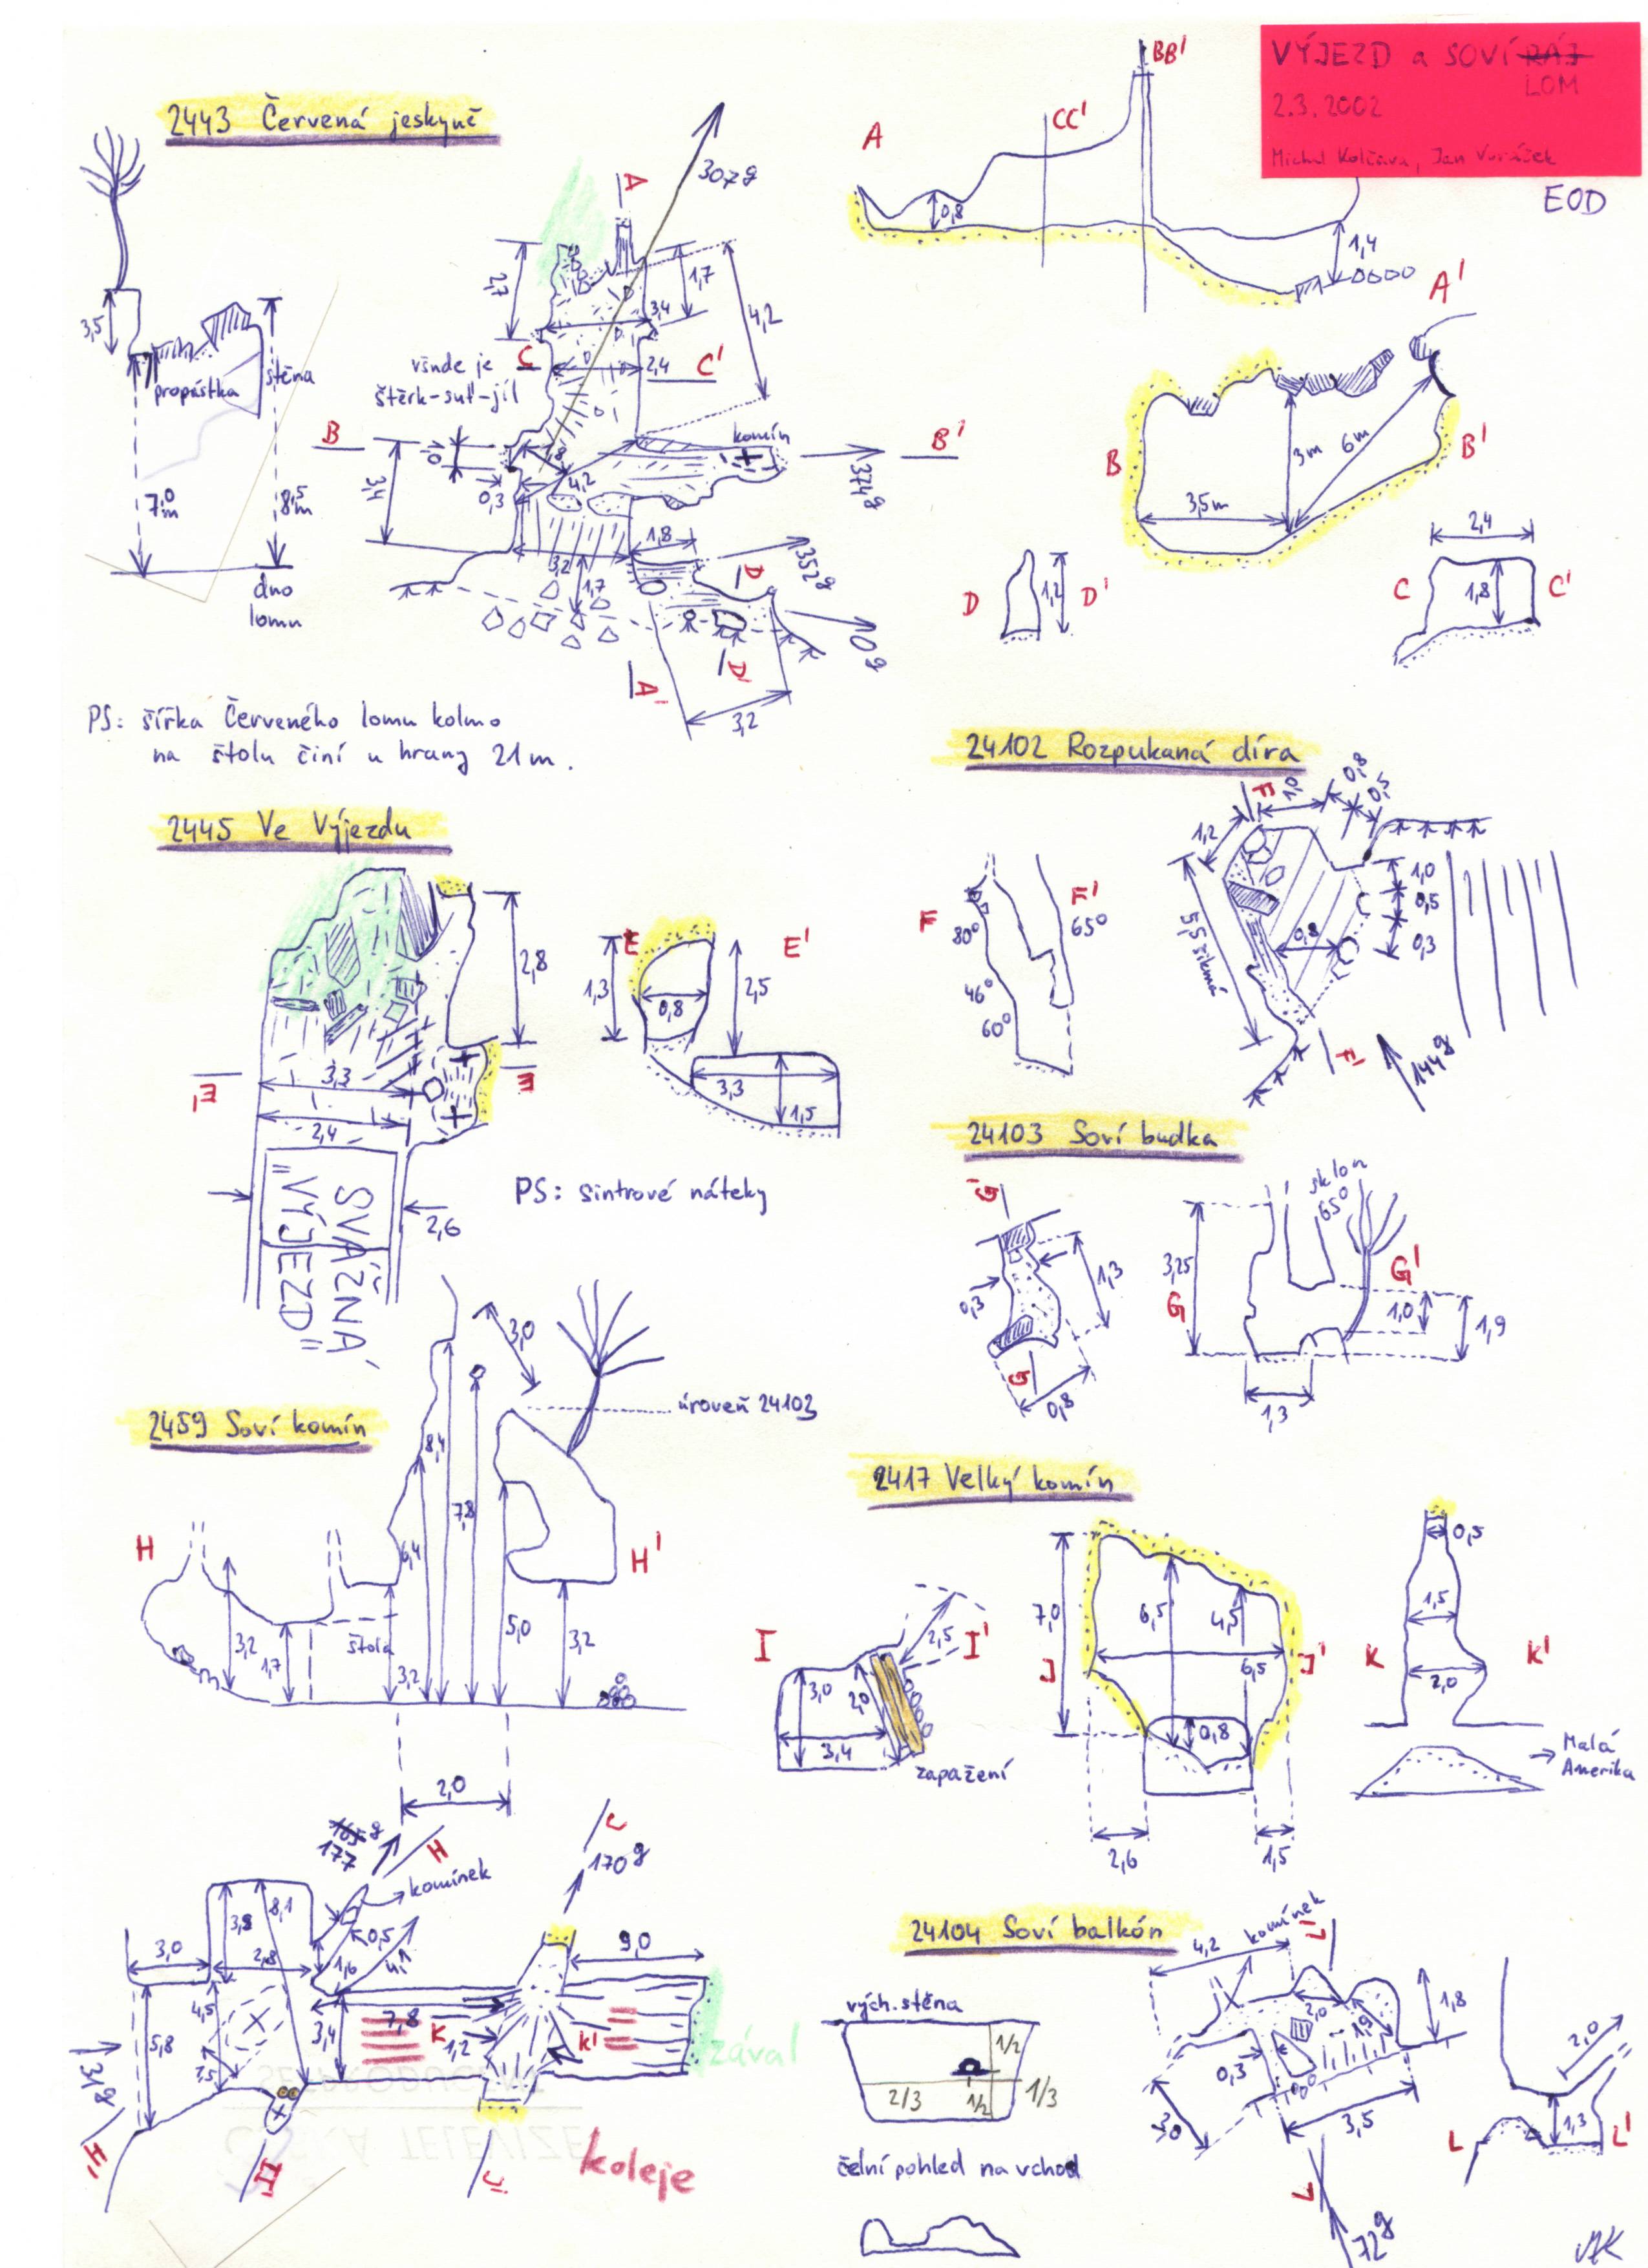 VÝJEZD a SOVÍ RÁJ
LOM
2.3.2002
EOD
2443 Červená jeskyně
A
307g
2,7
1,7
3,4
4,2
3,5
propástka
stěna
všude je
štěrk-suť-jíl
C
2,4
C'
B
komín
B'
374g
3,4
0,3
4,2
7,0
m
8,5
m
1,8
3,2
1,7
D
352g
0g
dno
lomu
D'
A'
3,2
A
CC'
BB'
0,8
1,4
A'
B
3m
6m
B'
3,5m
D
1,2
D'
2,4
C
1,8
C'
PS: šířka Červeného lomu kolmo
na štolu činí u hrany 21m.
24102 Rozpukaná díra
F
1,0
0,8
0,5
1,2
F
80°
F'
65°
46°
60°
5,5 šikmá
0,8
1,0
0,5
0,3
F'
144g
2445 Ve Výjezdu
2,8
E'
3,3
E
2,4
SVÁŽNÁ
"VÝJEZD"
2,6
E
E'
1,3
0,8
2,5
3,3
1,5
PS: sintrové náteky
24103 Soví budka
G'
0,3
1,3
G
0,8
sklon
65°
3,25
G
G'
1,0
1,9
1,3
2459 Soví komín
3,0
úroveň 24103
8,4
7,8
6,4
H
H'
3,2
1,7
štola
3,2
5,0
3,2
2,0
2417 Velký komín
I
2,5
I'
3,0
2,0
3,4
zapažení
7,0
6,5
4,5
J
6,5
J'
0,8
2,6
1,5
0,5
1,5
K
K'
2,0
Malá
Amerika
177
H
komínek
170g
3,0
3,8
8,1
0,5
2,8
1,6
9,0
5,8
4,5
3,4
7,8
K
1,2
K'
zával
H'
J'
koleje
24104 Soví balkón
vých. stěna
1/2
2/3
1/2
1/3
čelní pohled na vchod
komínek
4,2
L'
2,0
1,9
1,8
0,3
3,0
3,5
L
72g
2,0
1,3
L
L'